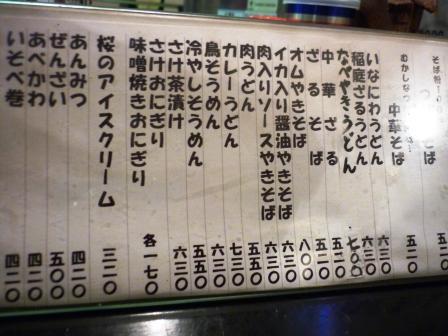 そば粉
そば
むかしなつかし
中華そば 五二〇
いなにわうどん 六三〇
稲庭ざるうどん 六三〇
なべやきうどん 七〇〇
中華ざる 五二〇
ざるそば 五二〇
オムやきそば 八〇〇
イカ入り醤油やきそば 六三〇
肉入りソースやきそば 六三〇
肉うどん 五五〇
カレーうどん 七三〇
鳥そうめん 六三〇
冷やしそうめん 五五〇
さけ茶漬け 六三〇
さけおにぎり
味噌焼きおにぎり 各一七〇
桜のアイスクリーム 三二〇
あんみつ 四二〇
ぜんざい 五〇〇
あべかわ 四二〇
いそべ巻 四二〇